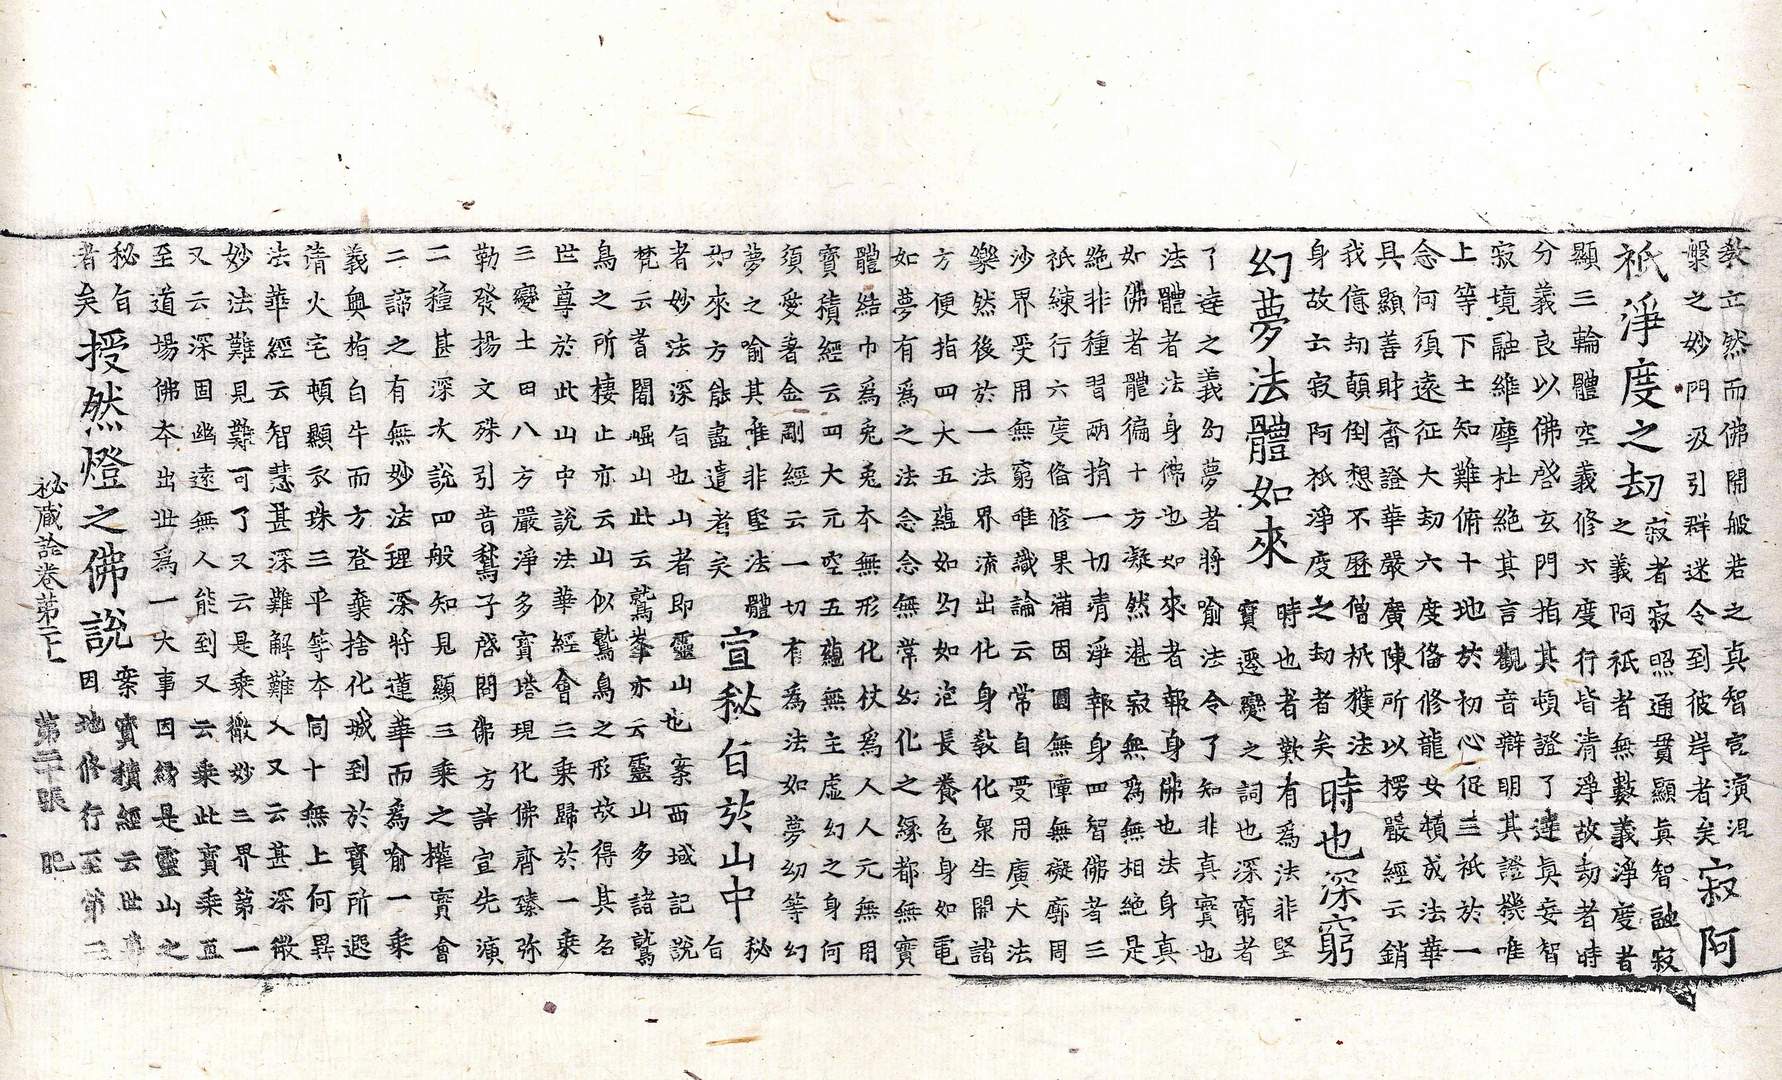 教立然而佛開般若之真智宣演涅
槃之妙門汲引群迷令到彼岸者矣
寂阿
祇淨度之劫
寂者寂照通貫顯真智融寂
之義阿祇者無數義淨度者
顯三輪體空義修六度行皆清淨故劫者時
分義良以佛啓玄門指其頓證了達真妄智
寂境融維摩杜絕其言觀音辯明其證機唯
上等下士知難俯十地於初心促三祇於一
念何須遠征大劫六度俻修龍女頓成法華
具顯善財奮證華嚴廣陳所以楞嚴經云銷
我億劫顛倒想不歷僧祇獲法
身故云寂阿祇淨度之劫者矣
時也深窮
幻夢法體如來
時也者歎有為法非堅
實遷變之詞也深窮者
了達之義幻夢者將喻法令了知非真實也
法體者法身佛也如來者報身佛也法身真
如佛者體徧十方凝然湛寂無為無相絕是
絕非種習兩捐一切清淨報身四智佛者三
祇練行六度俻修果滿因圓無障無礙廓周
沙界受用無窮唯識論云常自受用廣大法
樂然後於一法界流出化身教化衆生開諸
方便指四大五蘊如幻如泡長養色身如電
如夢有為之法念念無常幻化之緣都無實
體結巾為兎兎本無形化杖為人人元無用
寶積經云四大元空五蘊無主虛幻之身何
須愛著金剛經云一切有為法如夢幻等幻
夢之喻其唯非堅法體
如來方能盡遣者矣
宣秘㫖於山中
秘
㫖
者妙法深㫖也山者即靈山也案西域記說
梵云耆闍崛山此云鷲峯亦云靈山多諸鷲
鳥之所棲止亦云山似鷲鳥之形故得其名
世尊於此山中說法華經會三乘歸於一乘
三變土田八方嚴淨多寶塔現化佛齊臻弥
勒發揚文殊引昔鶖子啓問佛方許宣先演
二種甚深次說四般知見顯三乘之權實會
二諦之有無妙法理深將蓮華而為喻一乘
義奧指白牛而方登棄捨化城到於寶所遐
清火宅頓顯衣珠三平等本同十無上何異
法華經云智慧甚深難解難入又云甚深微
妙法難見難可了又云是乘微妙三界第一
又云深固幽遠無人能到又云乘此寶乘直
至道場佛本出世為一大事因緣是靈山之
秘㫖
者矣
授然燈之佛說
案寶積經云世尊
因地修行至第二
秘藏詮卷第二十一 第二十張